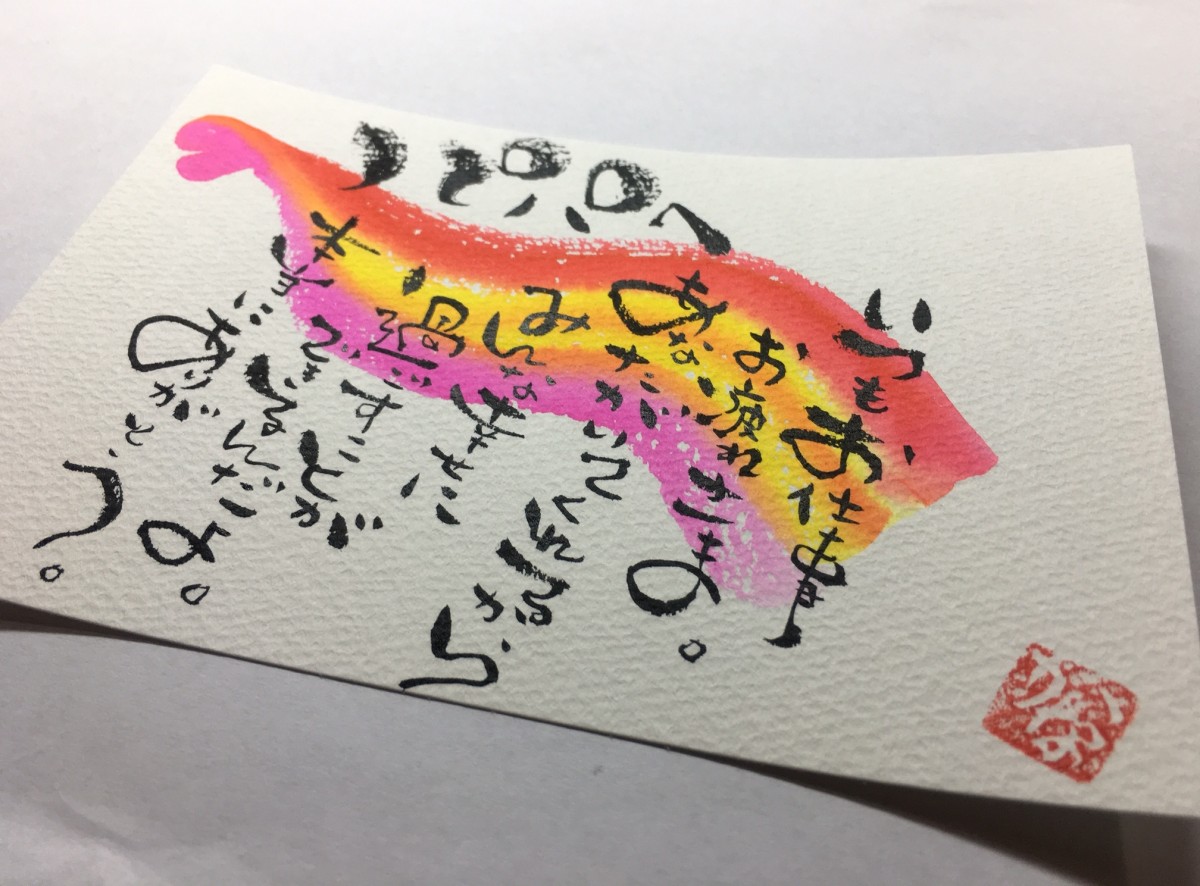 いつもお仕事
お疲れさま。
あなたがいてくれるから
みんな幸せに
過ごすことが
るんだよ。
本当にありがとう。